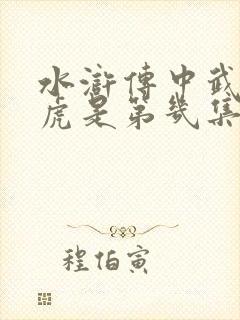 水滸傳中武
虎是第幾集
程伯寅